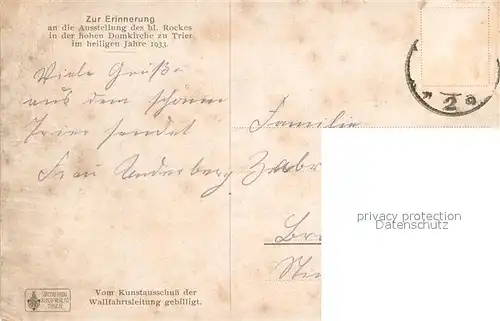 Zur Erinnerung
an die Ausstellung des hl. Rockes
in der hohen Domkirche zu Trier
im heiligen Jahre 1933.
Viele Grüße
aus dem schönen
Trier sendet
Frau Underberg
Familie
2a
privacy protection
Datenschutz
Vom Kunstausschuß der
Wallfahrtsleitung gebilligt.